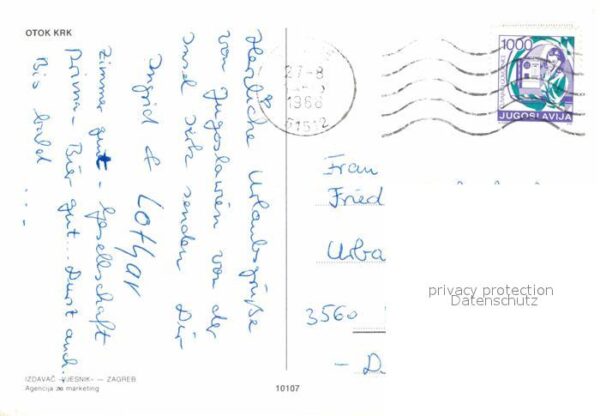 OTOK KRK
Herzliche Urlaubsgrüße
von Jugoslawien von der
Insel Krk senden Dir
Ingrid & Lothar
Zimmer gut - Gesellschaft
Prima - Bier gut... Durst auch.
Bis bald ...
27-8
51512
1000
JUGOSLAVIJA
Frau
Fried
Urba
3560
- D
privacy protection
Datenschutz
IZDAVAČ »VJESNIK« — ZAGREB
Agencija za marketing
10107